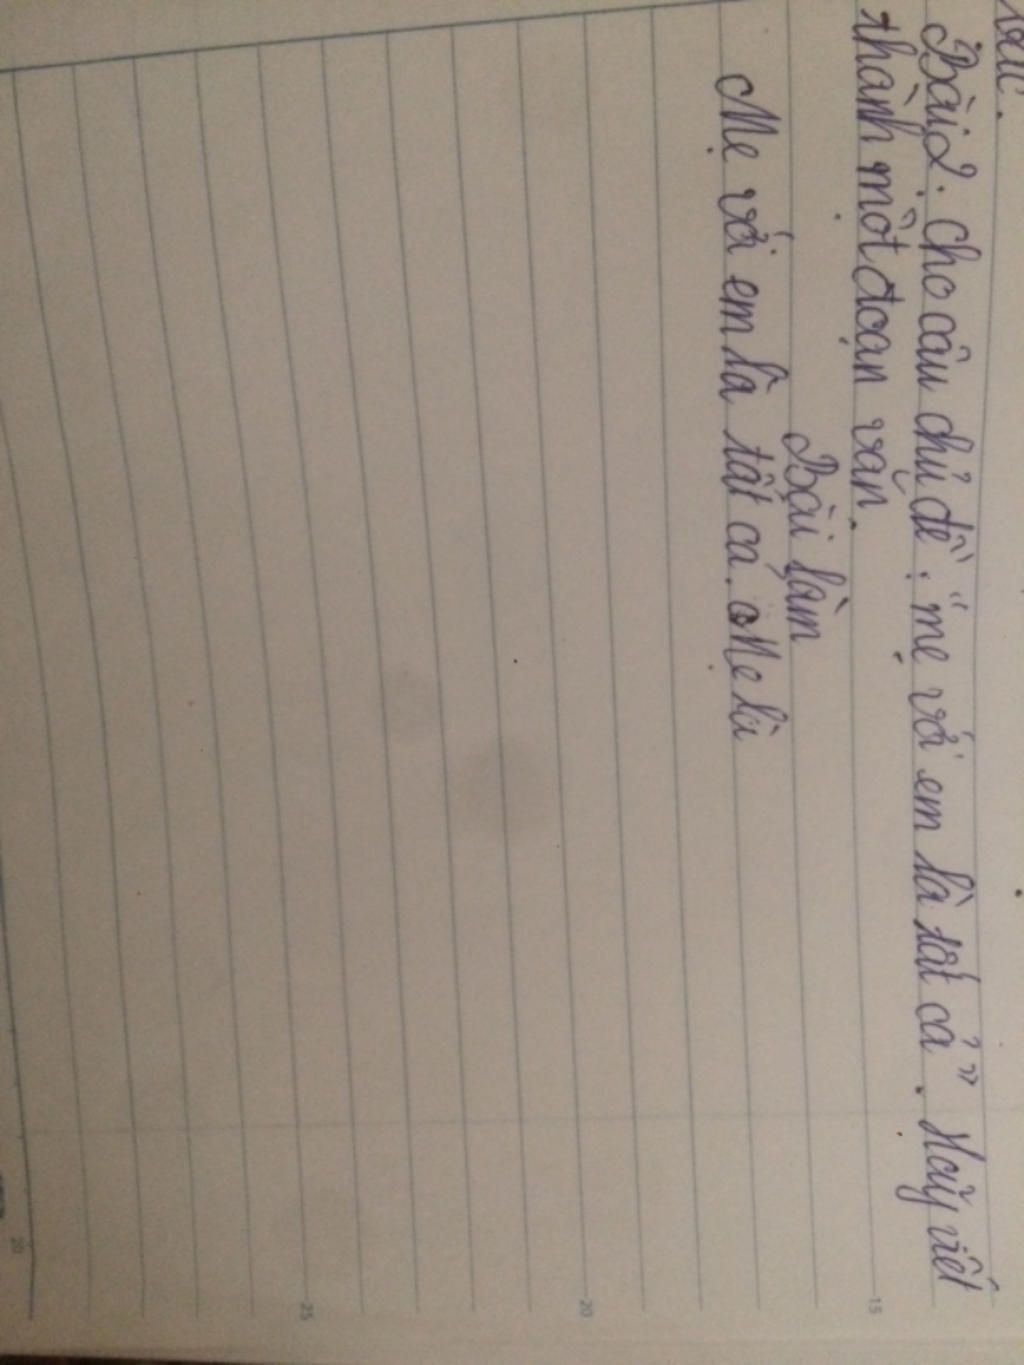 Bài 2. Cho câu chủ đề: "mẹ với em là tất cả". Hãy viết
thành một đoạn văn.
Bài làm
Mẹ với em là tất cả. Mẹ là
15
20
25
20